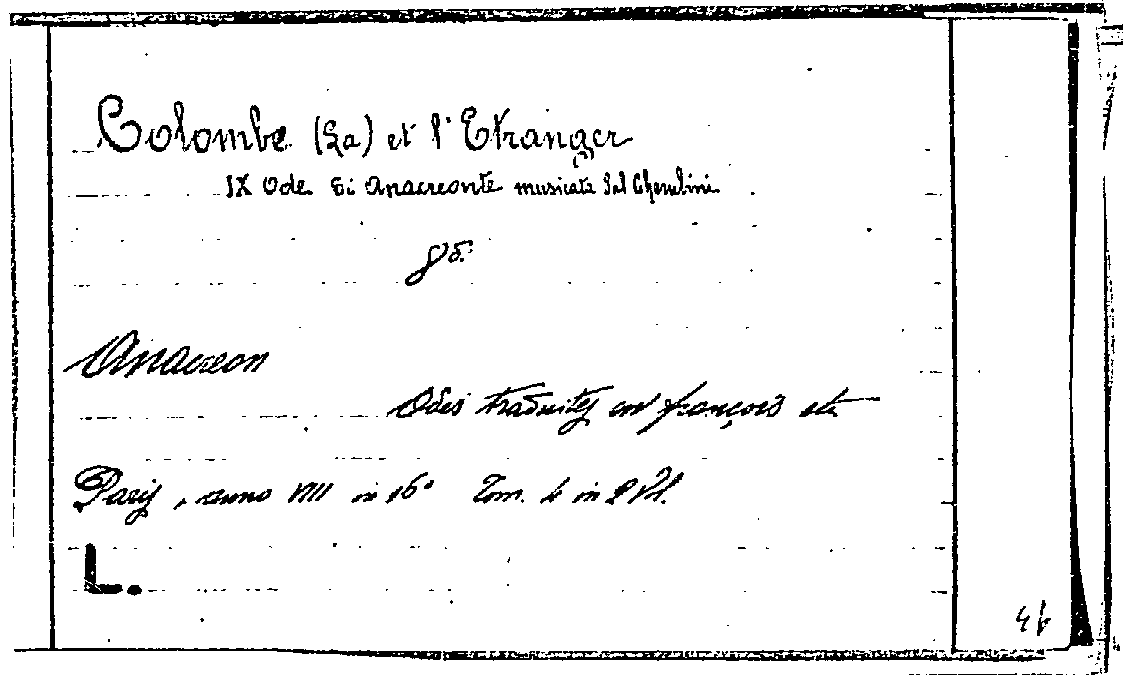 Colombe (La) et l'Etranger
IX Ode di Anacreonte musicata dal Cherubini
Anacreon
Odes traduites en françois etc
Paris, anno VIII in 16° Tom. 4 in 2 Vol.
L.